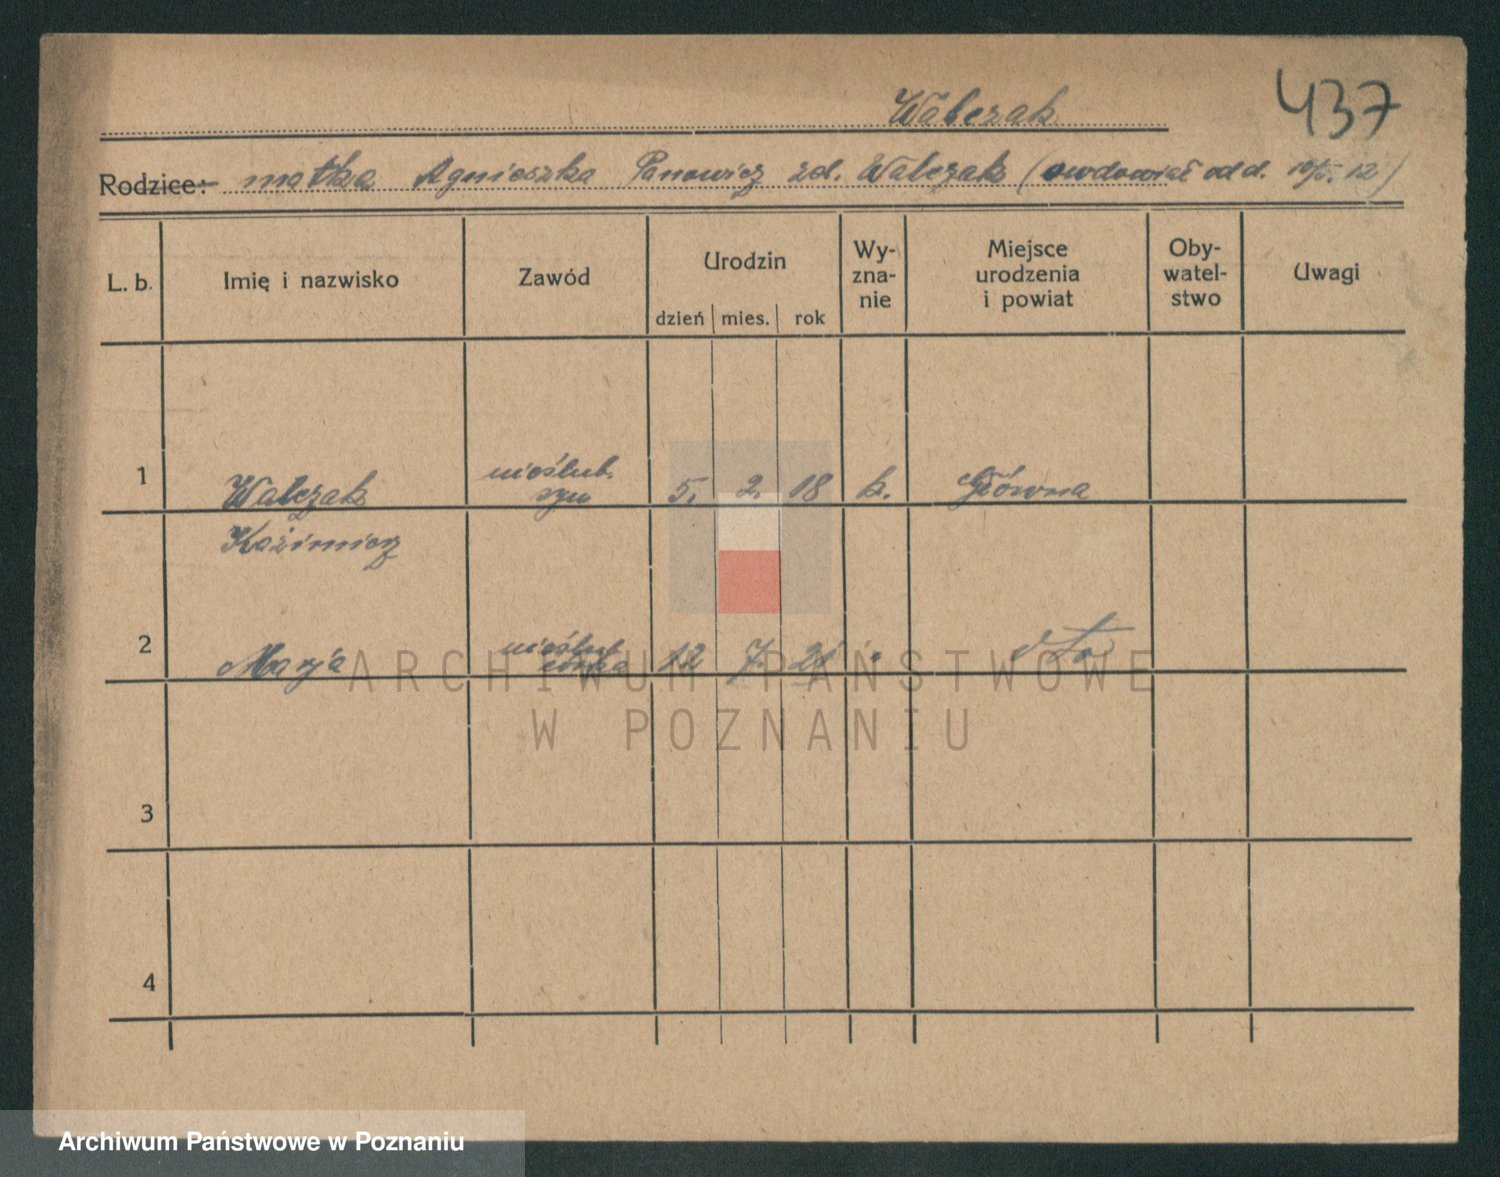 Walczak
437
Rodzice: matka Agnieszka Panowicz zd. Walczak (owdowiał od d. 12)
L. b.
Imię i nazwisko
Zawód
Urodzin
dzień mies. rok
Wy-
zna-
nie
Miejsce
urodzenia
i powiat
Oby-
watel-
stwo
Uwagi
1 Walczak
Kaźimierz
nieślub.
syn
5. 2. 18 k. Główna
2 Marja
nieślub
córka
12 7. 21 " dto
3
4
ARCHIWUM PAŃSTWOWE
W POZNANIU
Archiwum Państwowe w Poznaniu